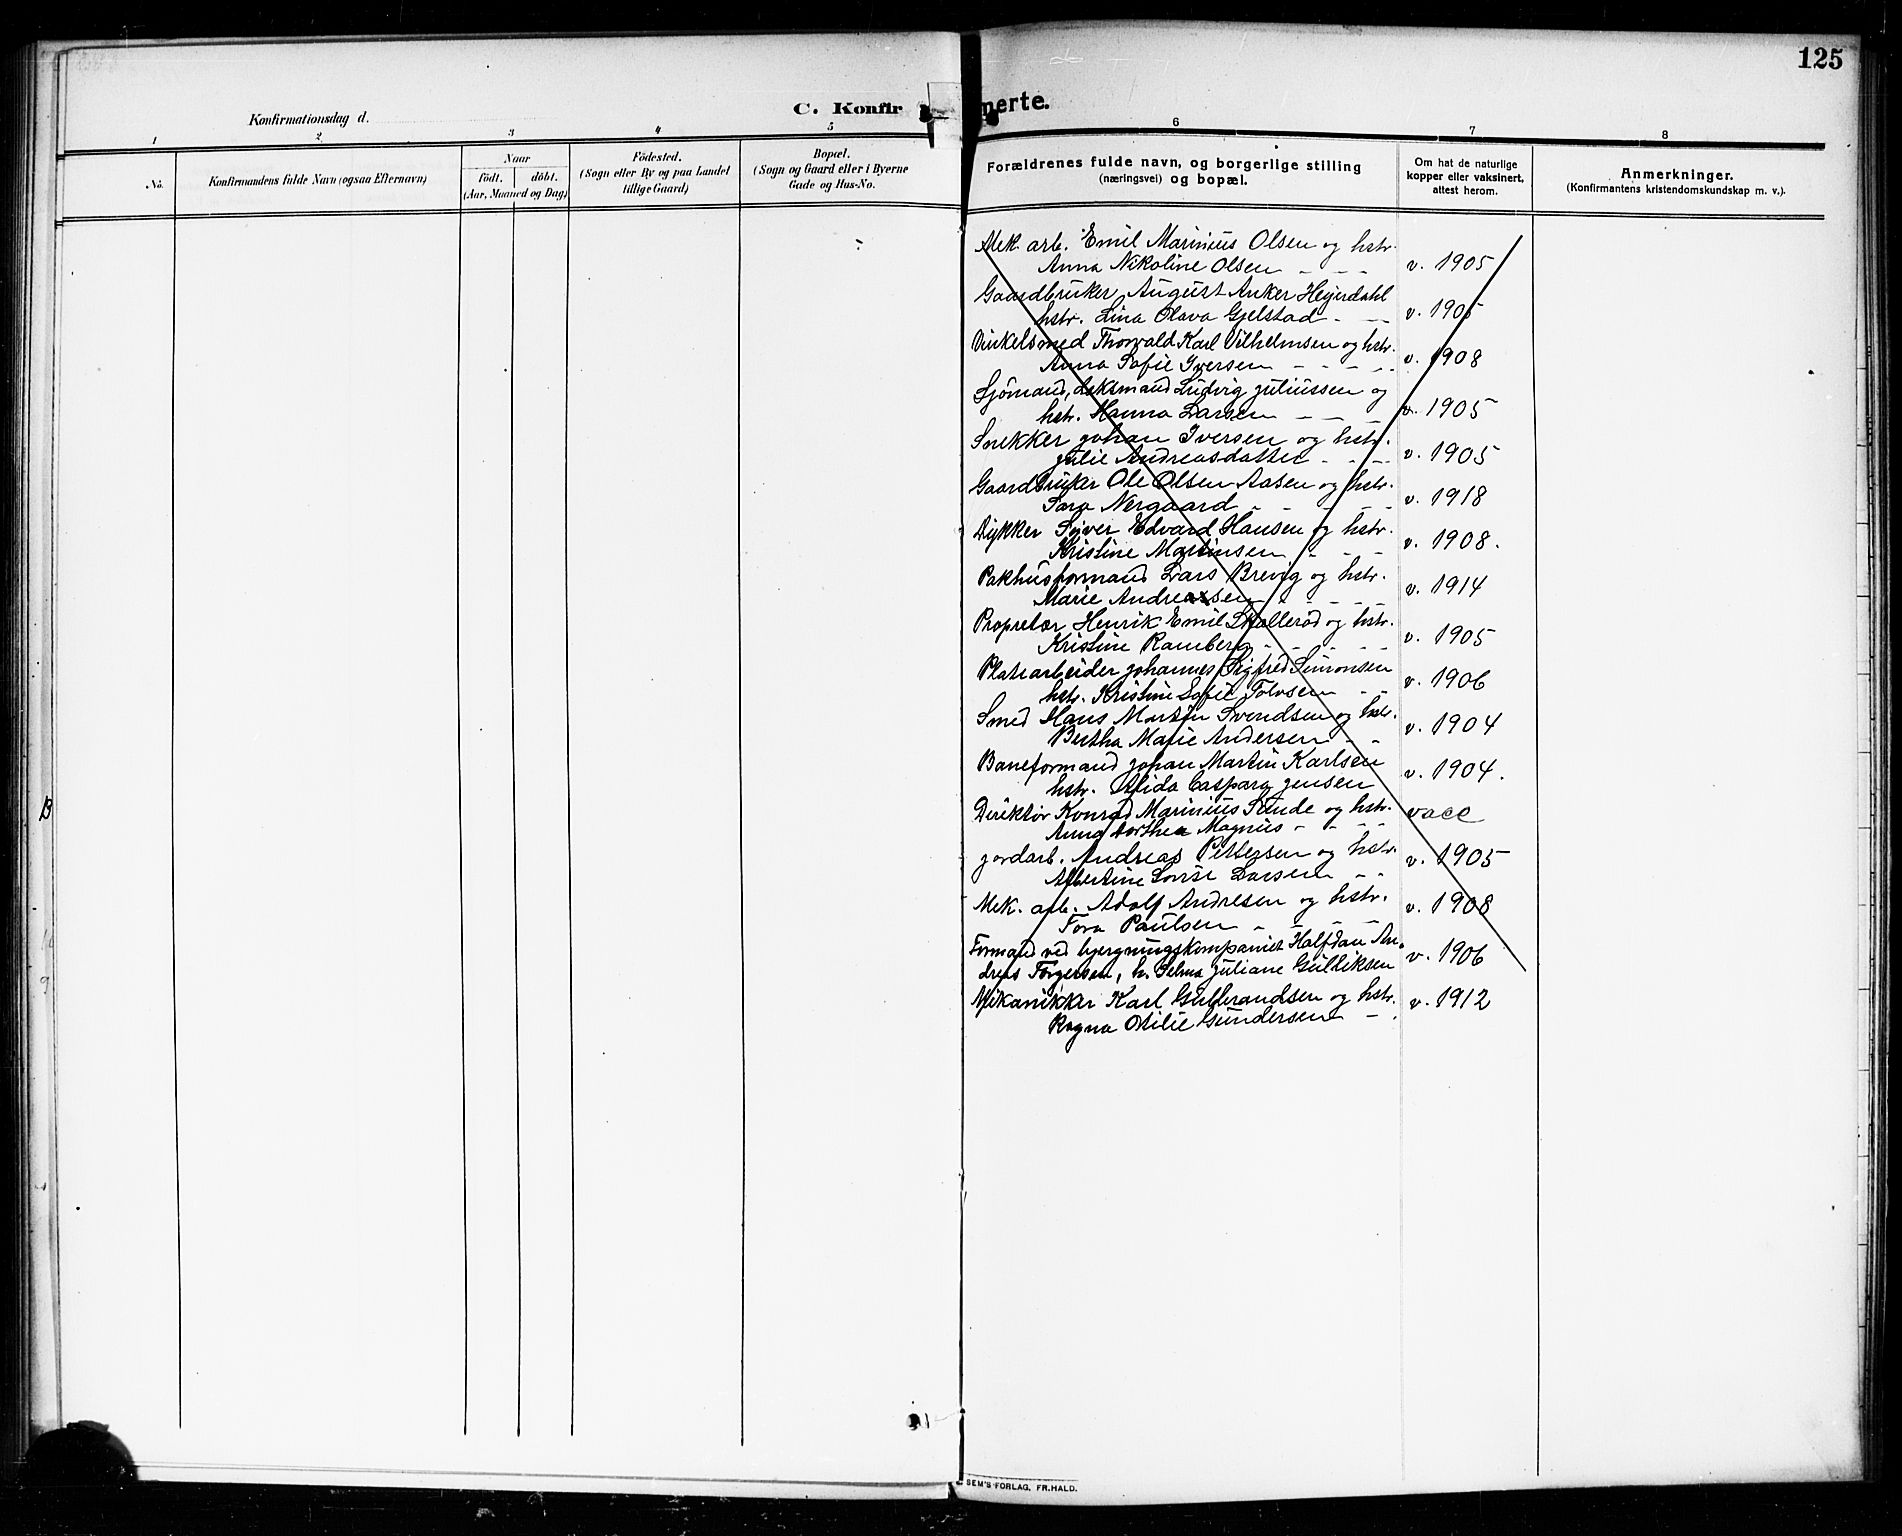 125
C. Konfir
merte.
Konfirmationsdag d.
1 2 3 4 5
No.
Konfirmandens fulde Navn (ogsaa Efternavn)
Naar
født. døbt.
(Aar, Maaned og Dag)
Fødested.
(Sogn eller By og paa Landet
tillige Gaard)
Bopæl.
(Sogn og Gaard eller i Byerne
Gade og Hus-No.
6 7 8
Forældrenes fulde navn, og borgerlige stilling
(næringsvei) og bopæl.
Om hat de naturlige
kopper eller vaksinert,
attest herom.
Anmerkninger.
(Konfirmantens kristendomskundskap m. v.).
Mek. arb. Emil Marinius Olsen og hstr.
Anna Nikoline Olsen - - - v. 1905
Gaardbruker August Anker Heyerdahl
hstr. Lina Olava Gjelstad - - v. 1905
Thorvald Karl Vilhelmsen og hstr.
Anna Sofie Iversen - - - - v. 1908
Sjömand, Ludvig Juliussen og
hstr. Hanna Larsen - - v. 1905
Snekker Johan Iversen og hstr.
Julie Andreasdatter - - - v. 1905
Gaardbruker Ole Olsen Aasen og hstr.
Sara Nergaard - - - - - v. 1918
Dykker Syver Edvard Hansen og hstr.
Kristine Martinsen - - - v. 1908.
Pakhusformand Lars Brevig og hstr.
Marie Andreassen - - - - v. 1914
Propretær Henrik Emil Skallerød og hstr.
Kristine Ramberg - - - - - v. 1905
Platearbeider Johannes Sigfred Simonsen
hstr. Kristine Sofie - - v. 1906
Smed Hans Martin Svendsen og hstr.
Bertha Marie Andersen - - v. 1904
Baneformand Johan Martin Karlsen
hstr. Alida Caspara Jensen v. 1904.
Direktör Konrad Marinius Sunde og hstr.
Anna Dorthea Magnus - - - vacc
Jordarb. Andreas Pettersen og hstr.
Albertine Lovise Larsen - - v. 1905
Mek. arb. Adolf Andresen og hstr.
Tora Paulsen - - - - v. 1908
Formand ved bjergningskompaniet Halfdan An-
dreas Torgersen, h. Selma Juliane Gulliksen v. 1906
Mekanikker Karl Gulbrandsen og hstr.
Ragna Otilie Gundersen - . v. 1912
SEM'S FORLAG, FR.HALD.